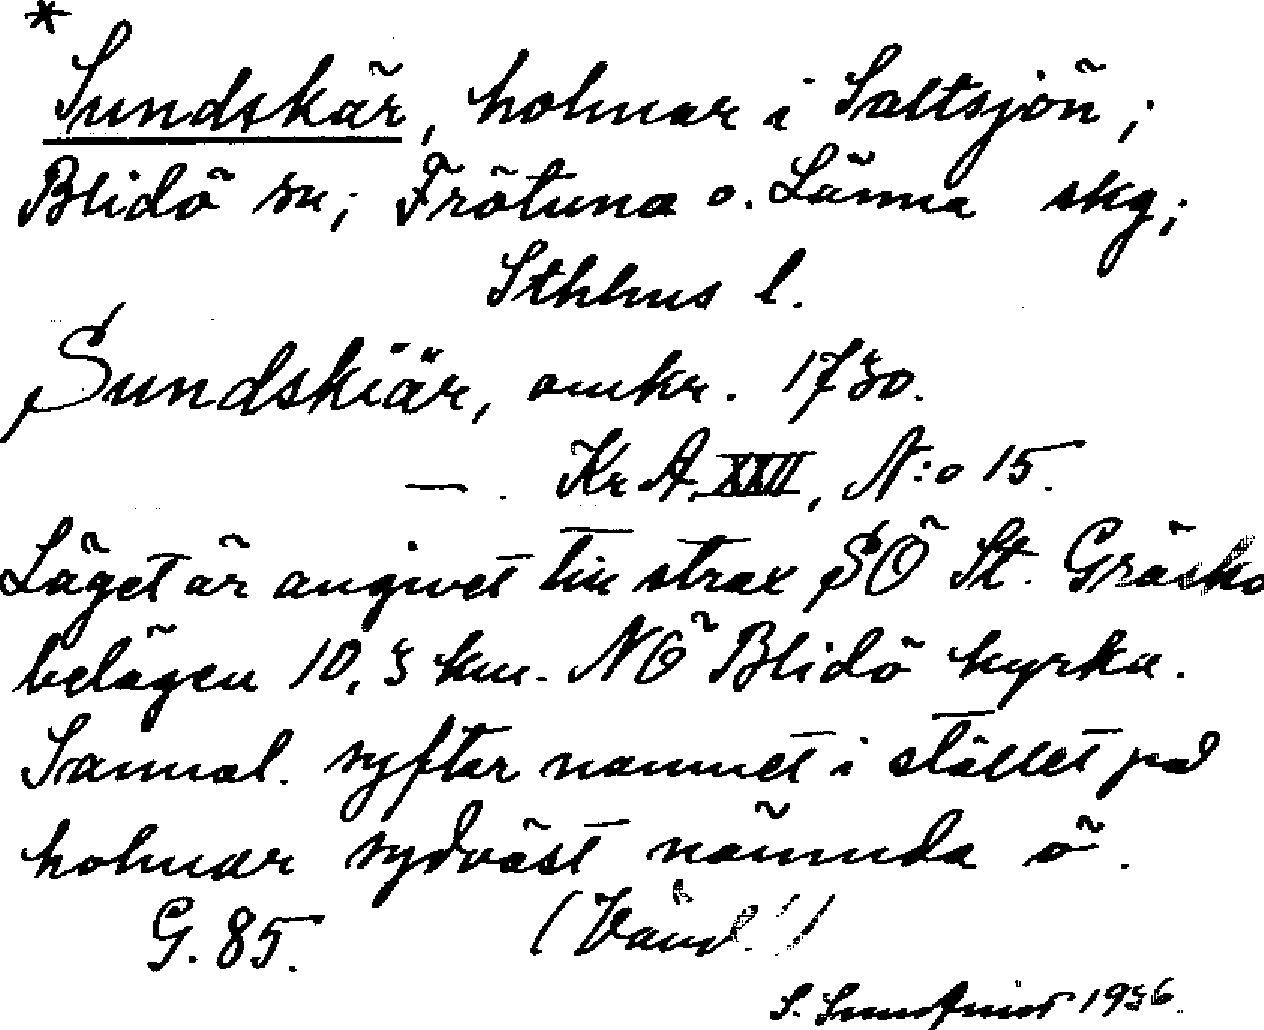 *
Sundskär, holmar i Saltsjön;
Blidö sn; Frötuna o. Länna skg;
Sthlms l.
Sundskiär, omkr. 1730.
— . Kr A, XXII, N:o 15.
Läget är angivet till strax SÖ St. Gräskö
belägen 10,3 km. NÖ Blidö kyrka.
Sannol. syftar namnet i stället på
holmar sydväst nämnda ö.
G. 85. (Vänd!)
S. 1936.